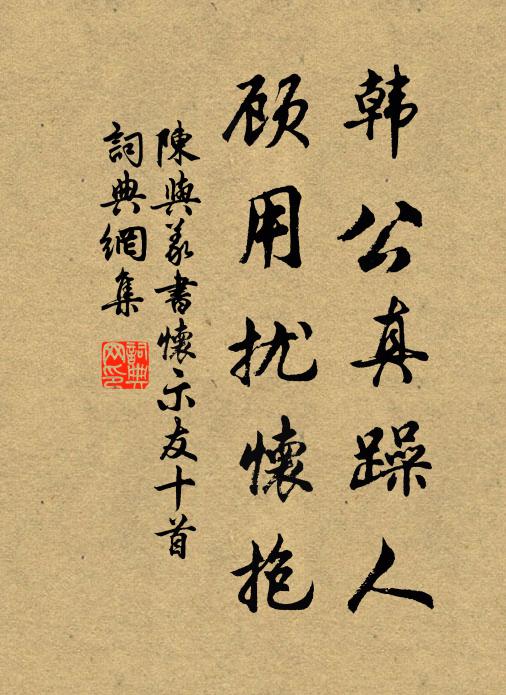 韩公真躁人
顾用扰懷抱
陳與義書懷示友十首
詞典網集
詞典
网印